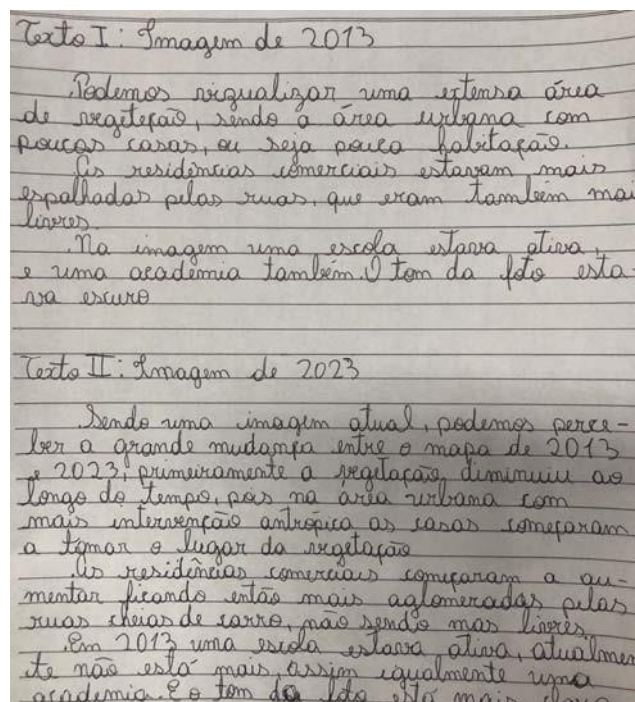 Texto I: Imagem de 2013
Podemos vizualizar uma extensa área
de vegetação, sendo a área urbana com
poucas casas, ou seja pouca habitação.
As residências comerciais estavam mais
espalhadas pelas ruas, que eram também mai
livres.
Na imagem uma escola estava ativa,
e uma academia também. O tom da foto esta-
va escuro
Texto II: Imagem de 2023
Sendo uma imagem atual, podemos perce-
ber a grande mudança entre o mapa de 2013
e 2023, primeiramente a vegetação diminuiu ao
longo do tempo, pois na área urbana com
mais intervenção antrópica as casas começaram
a tomar o lugar da vegetação
As residências comerciais começaram a au-
mentar ficando então mais aglomeradas pelas
ruas cheias de carro, não sendo mas livres.
Em 2013 uma escola estava ativa, atualmen
te não está mais, assim igualmente uma
academia. E o tom da foto está mais